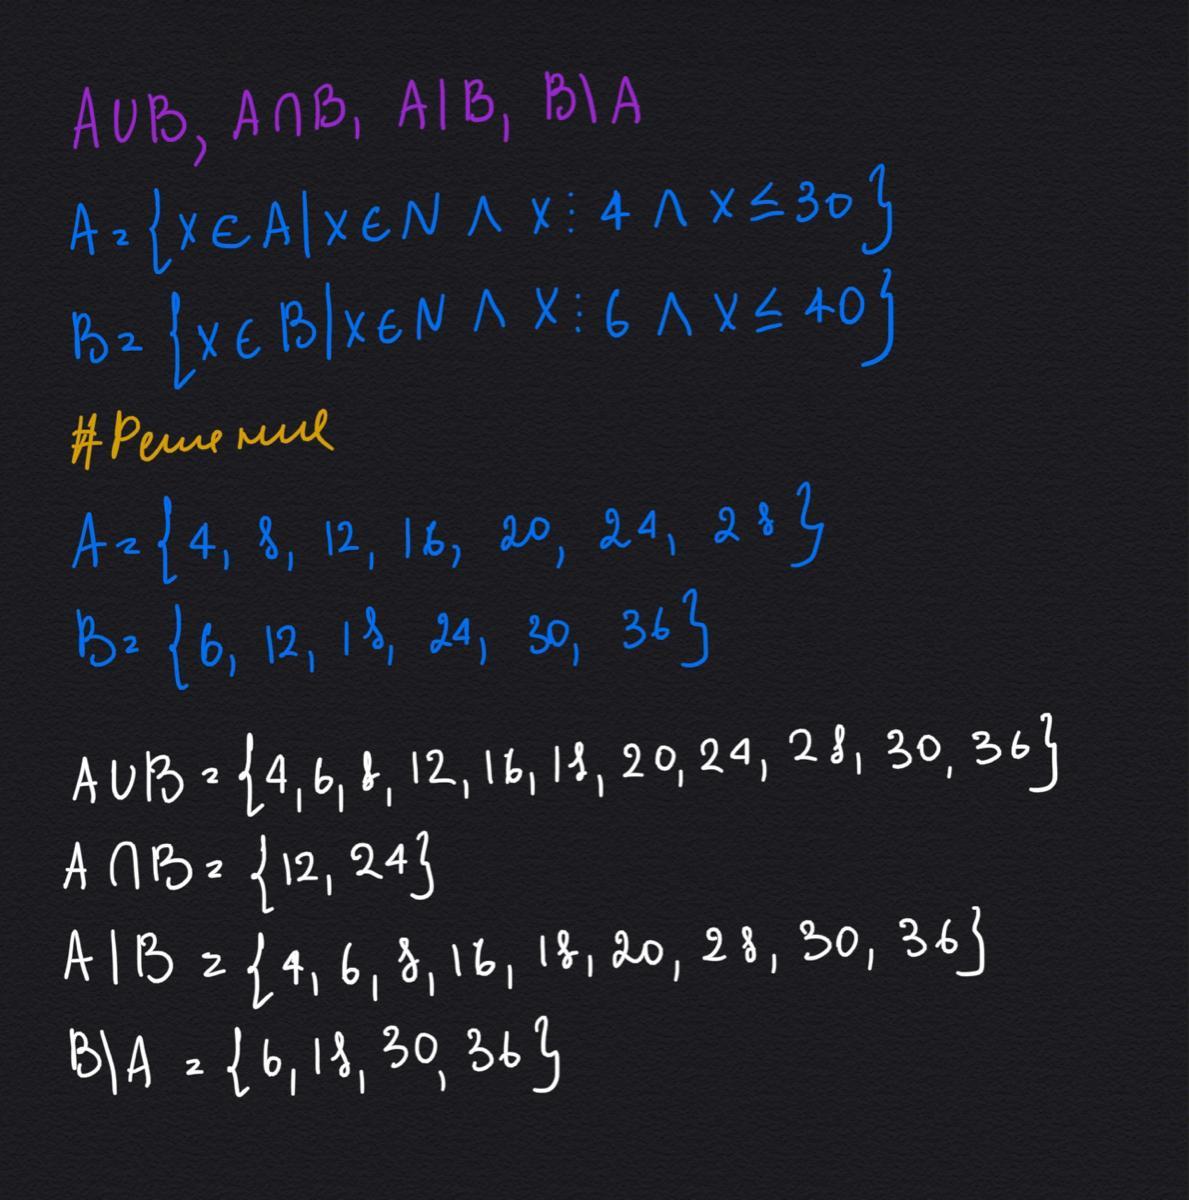 A∪B, A∩B, A|B, B\A
A = {x∈A|x∈N ∧ x⋮4 ∧ x≤30}
B = {x∈B|x∈N ∧ x⋮6 ∧ x≤40}
#Решение
A = {4, 8, 12, 16, 20, 24, 28}
B = {6, 12, 18, 24, 30, 36}
A∪B = {4, 6, 8, 12, 16, 18, 20, 24, 28, 30, 36}
A∩B = {12, 24}
A|B = {4, 6, 8, 16, 18, 20, 28, 30, 36}
B\A = {6, 18, 30, 36}